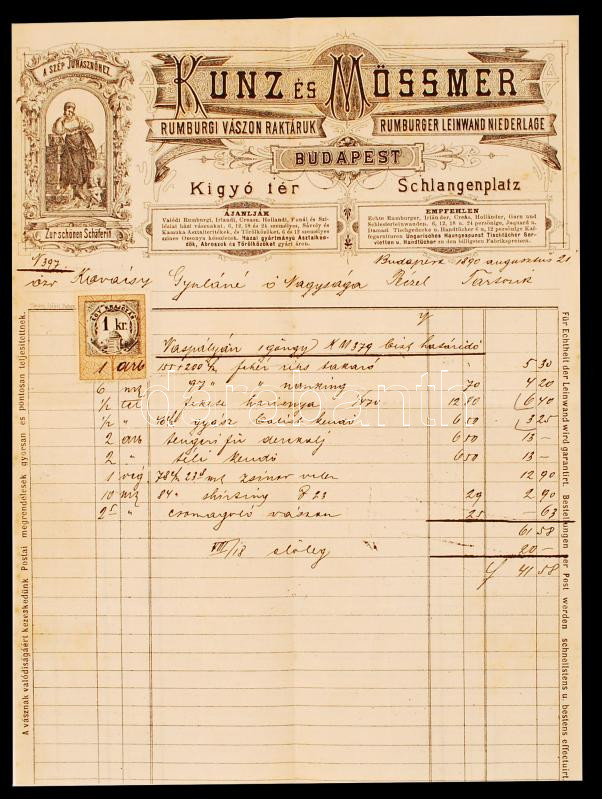 A SZÉP JUHÁSZNÉHEZ.
Zur schönen Schäferin
KUNZ ÉS MÖSSMER
RUMBURGI VÁSZON RAKTÁRUK
RUMBURGER LEINWAND NIEDERLAGE
BUDAPEST
Kigyó tér
Schlangenplatz
AJÁNLJÁK
Valódi Rumburgi, Irlandi, Creas, Hollandi, Fonál és Szi-
léziai házi vásznakat, 6, 12, 18 és 24 személyes, Sávoly és
Kanaka Asztalteritékek, és Törölközőket, 6 és 12 személyes
szines Gutonya készletek. Hazai gyártmányu Asztalken-
dők, Abroszok és Törölközőket gyári áron.
EMPFEHLEN
Echte Rumburger, Irländer, Creas, Holländer, Garn und
Schlesierleinwanden, 6, 12, 18 u. 24 persönige, Jaquard u.
Damast Tischgedecke u. Handtücher 6 u. 12 persönige Kaf-
feegarnituren Ungarisches Hausgespunst Tischtücher Ser-
vietten u. Handtücher zu den billigsten Fabrikspreisen.
N 397.
Budapest 1890 augusztus 21
özv Gyuláné ő Nagysága Tartozik
EGY KRAJCZÁR
1 kr.
1 arb 155+200 % fehér takaró 5 30
6 mt 97 " " nanking 70 4 20
1/2 tct fekete harisnya 1470 12 80 6 40
1/2 " gyász kendő 6 50 3 25
2 arb tengeri fű derekalj 6 50 13 –
2 " téli kendő 6 50 13 –
1 vég 78 % 23 mt zsinor 12 90
10 mt 84 " shirting 23 29 2 90
25 " csomagoló vászon 25 – 63
61 58
VIII/18 előleg 20 –
41 58
A vásznak valódiságáért kezeskedünk. Postai megrendelések gyorsan és pontosan teljesittetnek.
Für Echtheit der Leinwand wird garantirt. Bestellungen per Post werden schnellstens u. bestens effectuirt.
darabanth